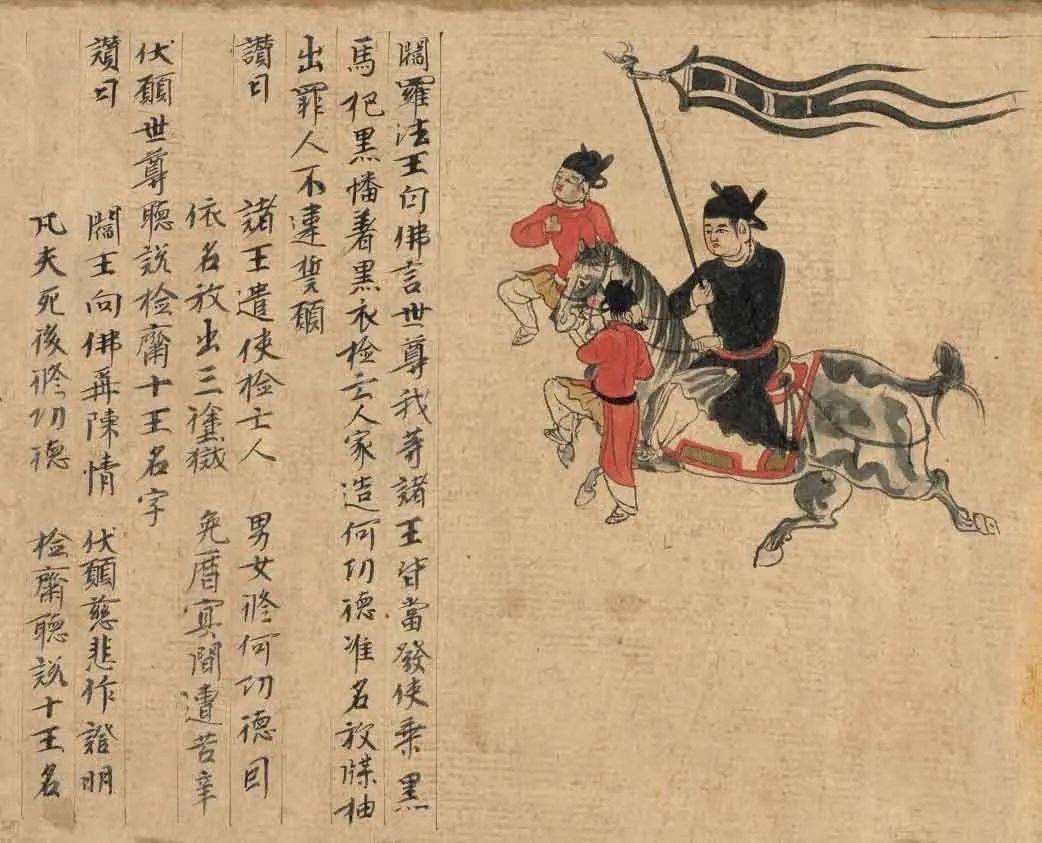 閻羅法王白佛言世尊我等諸王皆當發使乗黒
馬把黒幡著黒衣檢亡人家造何功德准名放牒抽
出罪人不違誓願
讃曰
諸王遣使檢亡人 男女修何功德因
依名放出三塗獄 免曆冥間遭苦辛
伏願世尊聽說檢齋十王名字
讃曰
閻王向佛再陳情 伏願慈悲作證明
凡夫死後修功德 檢齋聽說十王名